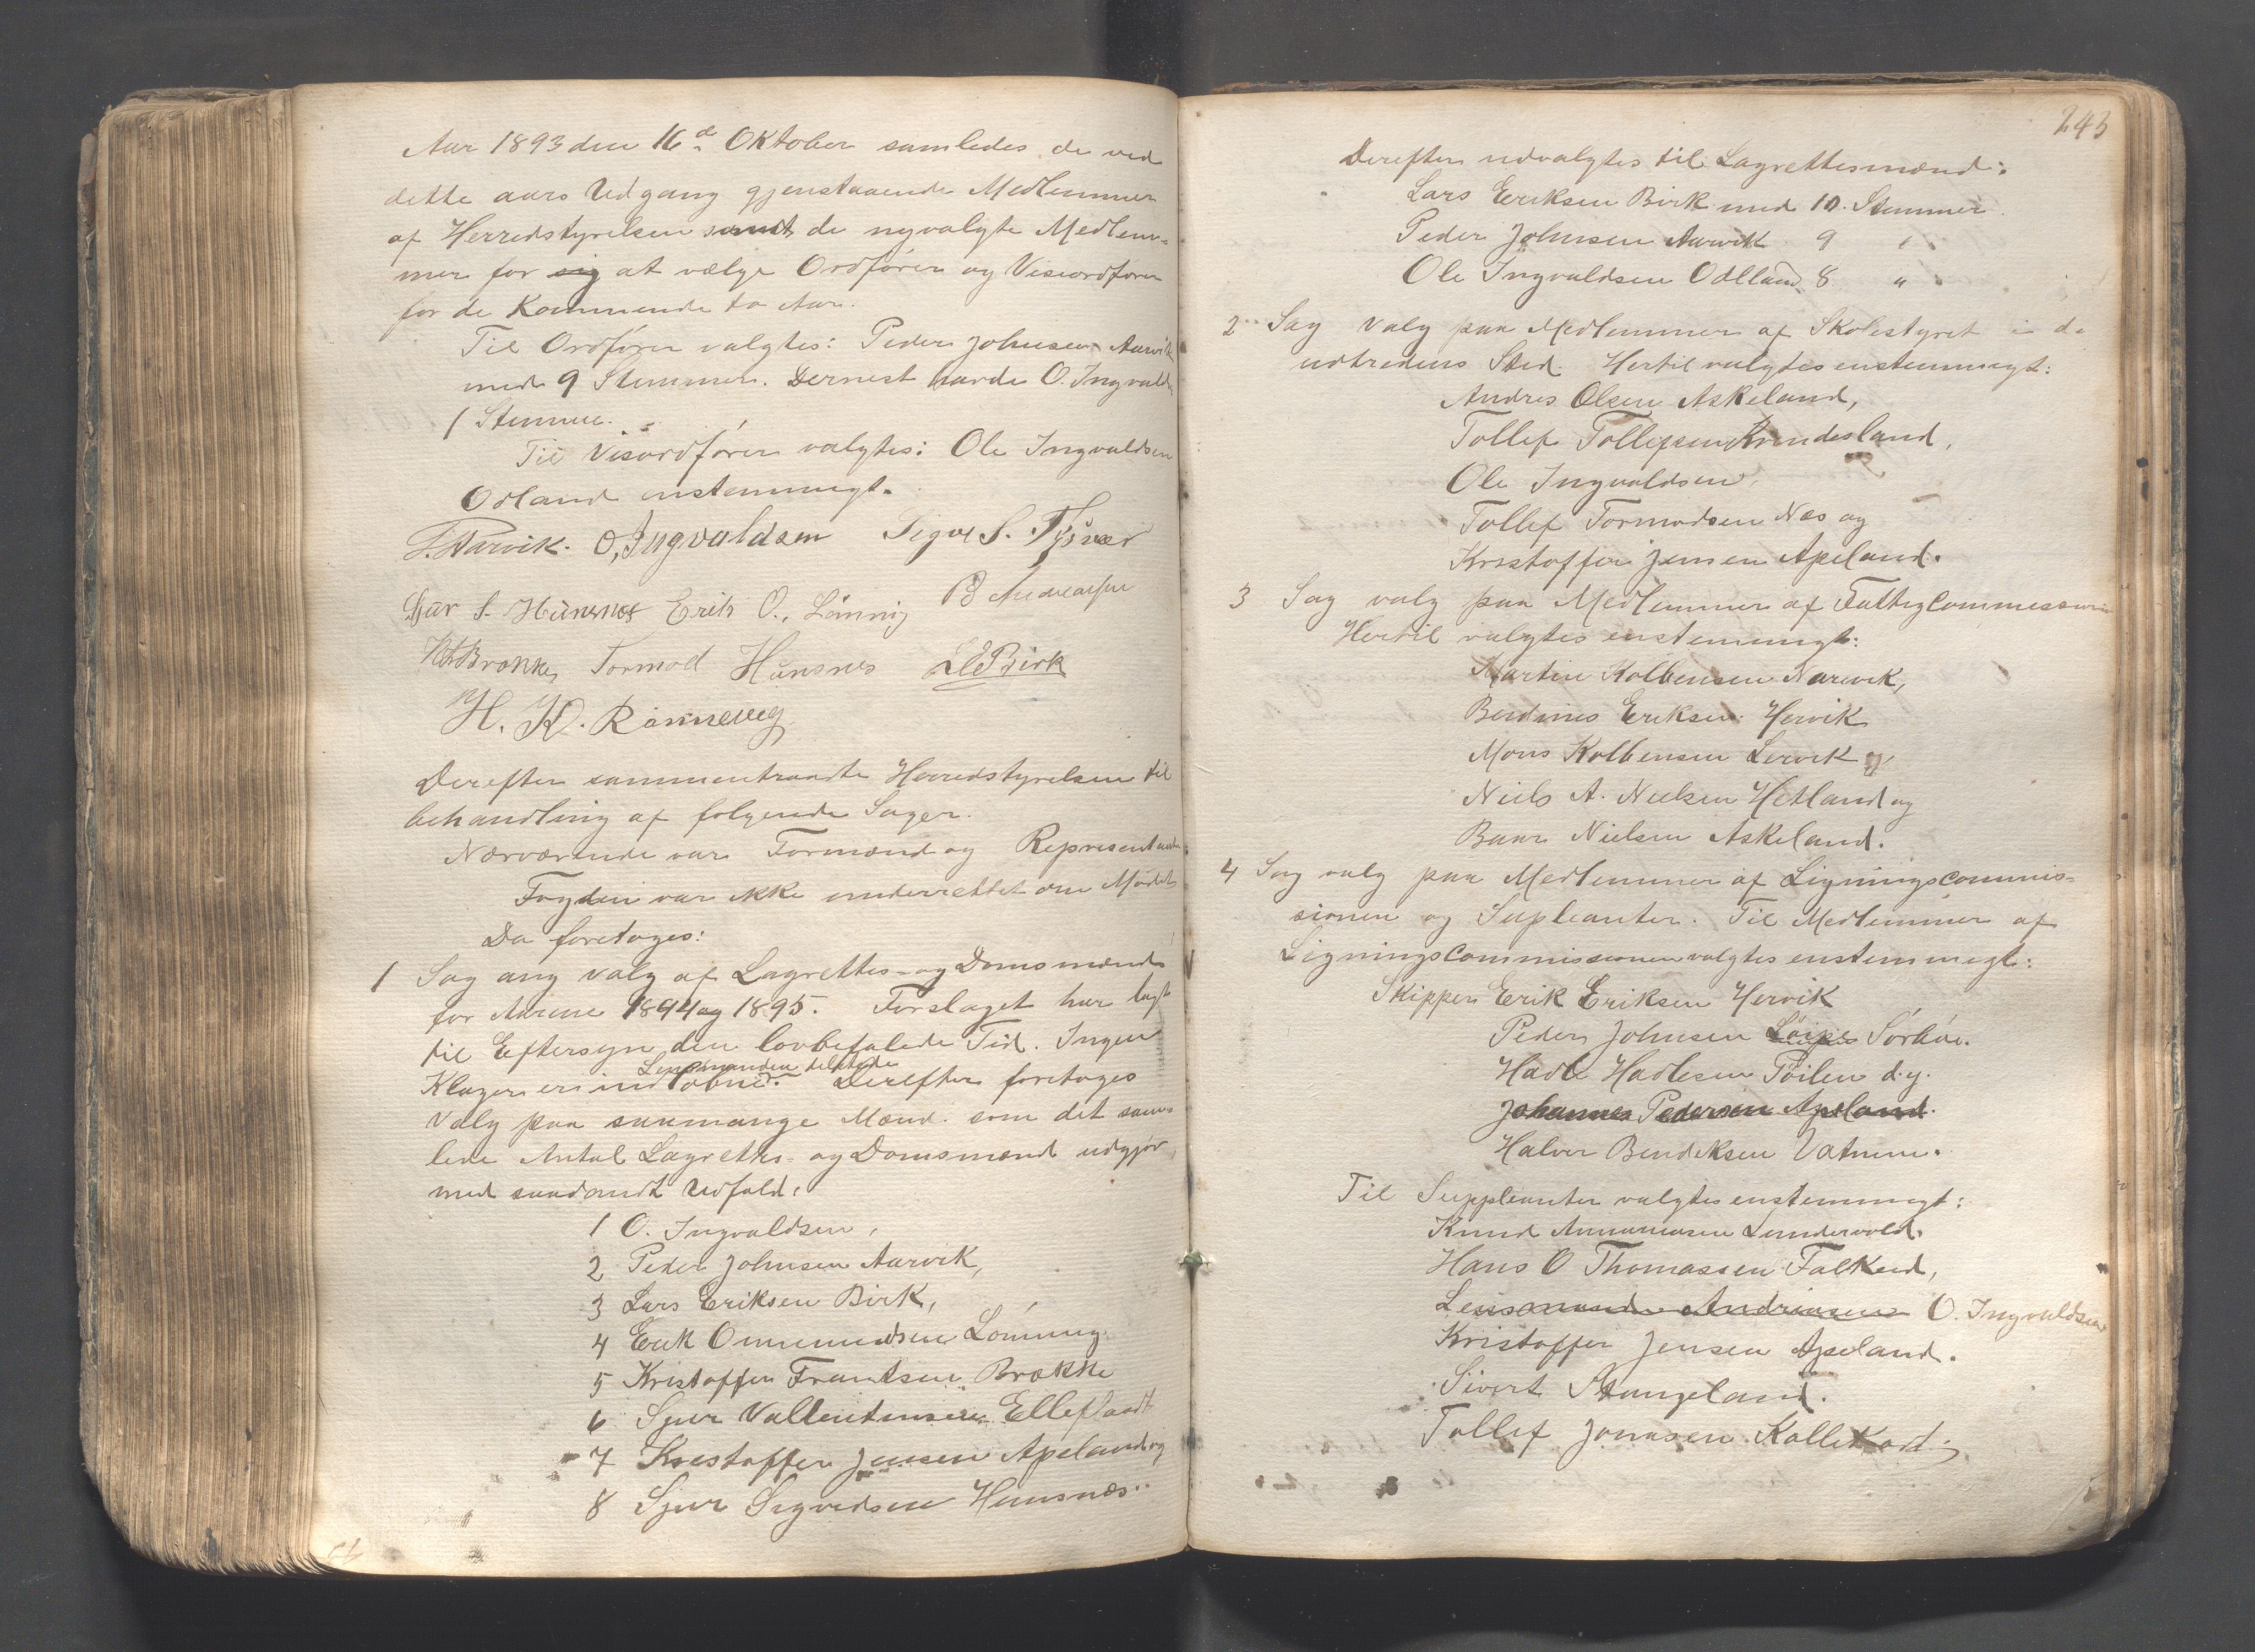 Aar 1893 den 16de Oktober samledes de ved
dette aars Udgang gjenstaaende Medlemmer
af Herredstyrelsen samt de nyvalgte Medlem-
mer for sig at vælge Ordfører og Viseordfører
for de Kommende to Aar.
Til Ordfører valgtes: Peder Johnsen Aarvik
med 9 Stemmer. Dernest havde O. Ingvalds
1 Stemme.
Til Viseordfører valgtes: Ole Ingvaldsen
Odland enstemmigt.
P. Aarvik. O, Ingvaldsen Sigve S. Tysvær
Sjur S. Hünsnes Erik O. Lönnig B Andreassen
Brække Tormod Hünsnes LE Birk
H. K. Rönnevig
Derefter sammentraadte Herredstyrelsen til
behandling af følgende Sager.
Nærværende var Formænd og Representanter
Fogden var ikke underrettet om Mödet
Da foretoges:
1 Sag ang valg af Lagrettes- og Domsmænd
for Aarene 1894 og 1895. Forslaget har lagt
til Eftersyn den lovbefalede Tid. Ingen
Lensmanden tilstede
Klager er indlöbne. Derefter foretoges
Valg paa saamange Mænd som det sam-
lede Antal Lagrettes- og Domsmænd udgjør,
med saadandt Udfald:
1 O. Ingvaldsen,
2 Peder Johnsen Aarvik,
3 Lars Eriksen Birk,
4 Erik Ommundsen Lönning
5 Kristoffer Frantsen Brække
6 Sjur Vallentinsen Elleflaadt
7 Kristoffer Jensen Apeland og
8 Sjur Sigvedsen Hunsnæs.
243
Derefter udvalgtes til Lagrettesmænd:
Lars Eriksen Birk med 10. Stemmer
Peder Johnsen Aarvik 9 "
Ole Ingvaldsen Odlland 8 "
2 Sag Valg paa Medlemmer af Skolestyret i de
udtredens Sted. Hertil valgtes enstemmigt:
Andres Olsen Askeland,
Tollef Tollefsen Krindesland,
Ole Ingvaldsen,
Tollef Tormodsen Næs og
Kristoffer Jensen Apeland.
3 Sag valg paa Medlemmer af Fattigcommissionen
Hertil valgtes enstemmigt:
Martin Kolbensen Narevik,
Berdines Eriksen Hervik
Mons Kolbensen Lervik og
Niels A. Nielsen Hetland og
Baar Nielsen Askeland.
4 Sag valg paa Medlemmer af Ligningscommis-
sionen og Supleanter. Til Medlemmer af
Ligningscommissionen valgtes enstemmigt:
Skipper Erik Eriksen Hervik
Peder Johnsen Sörböe.
Hadle Hadlesen Töilen d.y.
Johannes Pedersen Apeland.
Halvor Bendiksen Vatnene.
Til Suppleanter valgtes enstemmigt:
Knud Annaniasen Lundervold.
Hans O Thomassen Falkeid,
Lensmand Andreasen O. Ingvaldsen
Kristoffer Jensen Apeland.
Sivert Stangeland.
Tollef Jonasen Kallekodt;